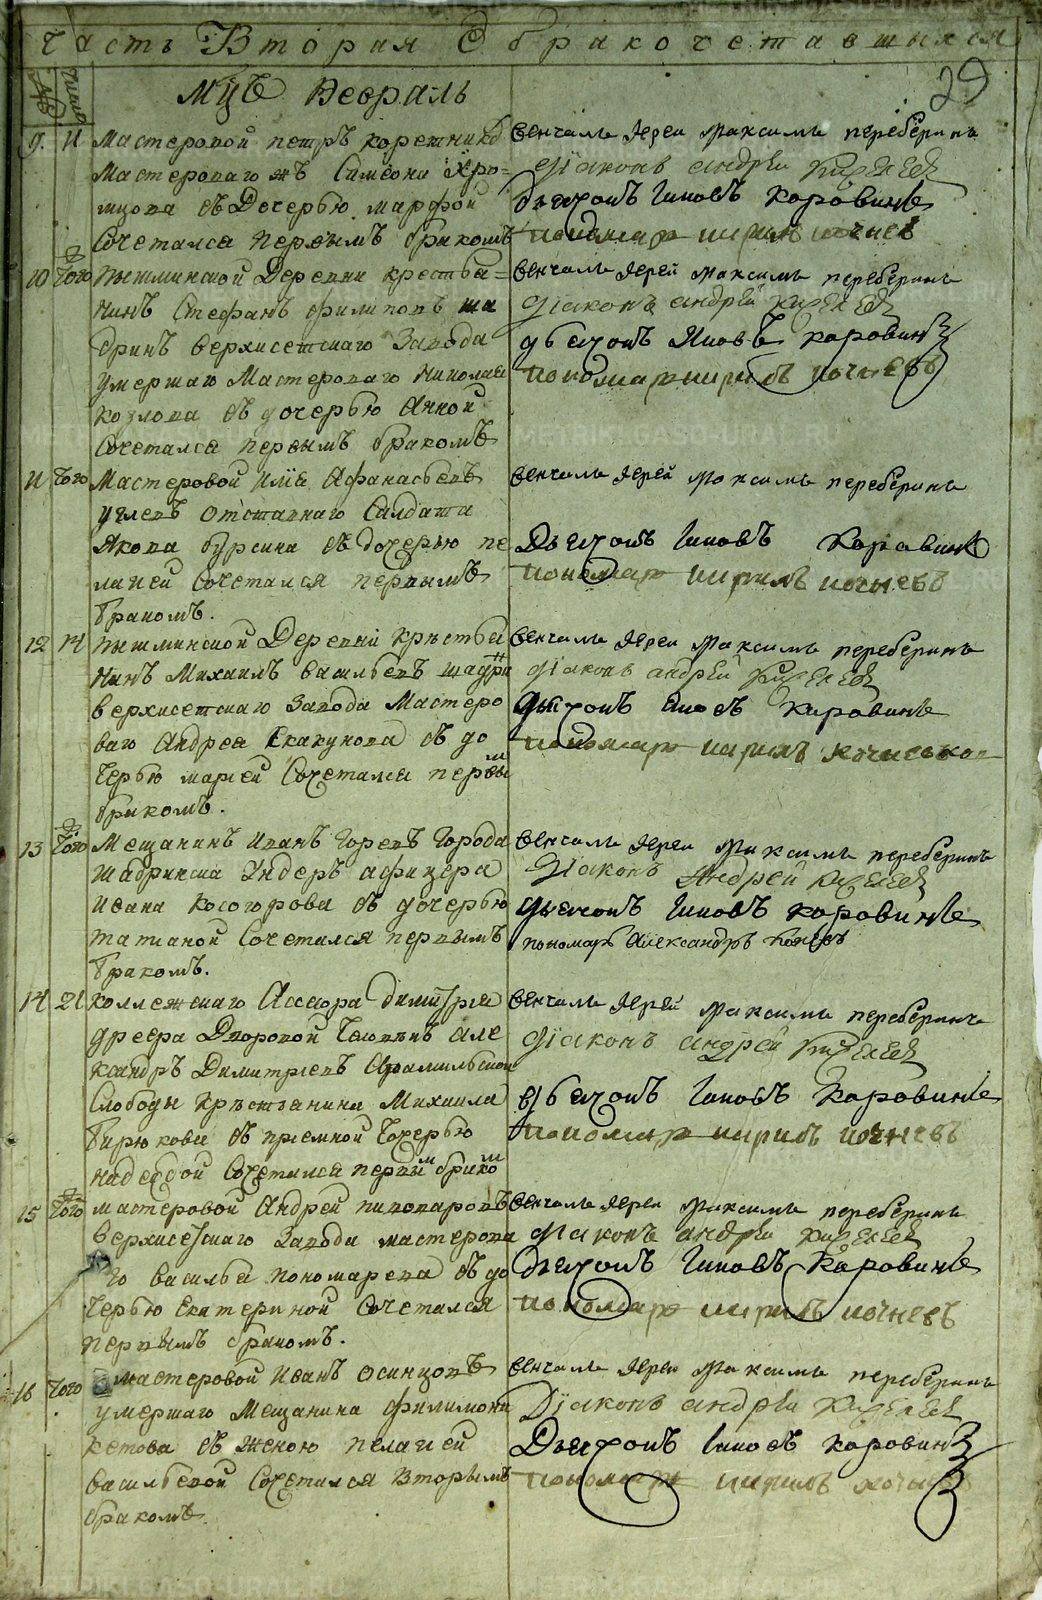 Часть Вторая О бракочетавшыхся
29
Мцъ Февраль
9. 11 Мастеровой петръ
Мастероваго жъ Симеона Хро=
мцова съ Дочерью марфой
Сочетался первымъ бракомъ
венчалъ Иереи максимъ переберинъ
Діаконъ андрей
дьячокъ Iаковъ Коровинъ
пономарь кирилъ кочневъ
10 того пышминской Деревни крестья=
нинъ Стефанъ филиповъ ша
дринъ верхисетскаго Завода
умершаго Мастероваго николая
козлова съ дочерью Анной
Сочетался первымъ бракомъ
венчалъ Иерей максимъ переберинъ
діаконъ андрей
дьячокъ Яковъ коровинъ
пономарь кирилъ кочневъ
11 того Мастеровой Илья Афанасьевъ
углевъ отставнаго Салдата
Якова бурсина съ дочерью пе
лагией Сочетался первымъ
бракомъ.
венчалъ Иерей максимъ переберинъ
Дьячокъ Iаковъ Коровинъ
пономарь кирилъ кочневъ
12 14 пышминской Деревни кръстья
нинъ Михаилъ васильевъ шадри
верхисетскаго Завода Мастеро
ваго Андрея Скакунова съ до
черью марией Сочетался первы
бракомъ.
венчалъ Иереи максимъ переберинъ
діаконъ андрей
дьячокъ Iаковъ коровинъ
пономарь кирилъ
13 того Мещанинъ иванъ горевъ города
шадринска Ундеръ афицера
ивана косогорова съ дочерью
татианой Сочетался первымъ
бракомъ.
венчалъ Иереи максимъ переберинъ
Діаконъ Андрей
дьячокъ Iаковъ коровинъ
пономарь Александръ
14 21 коллежскаго Ассесора димитрия
Дворовой Человекъ Але
ксандръ Димитриевъ Арамильской
Слободы кръстьянина Михаила
бирюкова съ приемной дочерью
надеждой Сочетался первым браком
венчалъ Иерей максимъ переберинъ
діаконъ андрей
дьячокъ Iаковъ Коровинъ
пономарь кирилъ кочневъ
15 того мастеровой Андрей пивоваровъ
верхисетскаго Завода мастерова
го василья пономарева съ до
черью Екатериной Сочетался
первымъ бракомъ.
венчалъ Иереи максимъ переберинъ
діаконъ андрей
дьячокъ Iаковъ Коровинъ
пономарь кирилъ кочневъ
16 того мастеровой Иванъ осинцовъ
умершаго Мещанина филимона
кетова съ женою пелагией
васильевой Сочетался вторымъ
бракомъ
венчалъ Иереи максимъ переберинъ
Діаконъ андрей
Дьячокъ Iаковъ коровинъ
пономарь кирилъ кочневъ